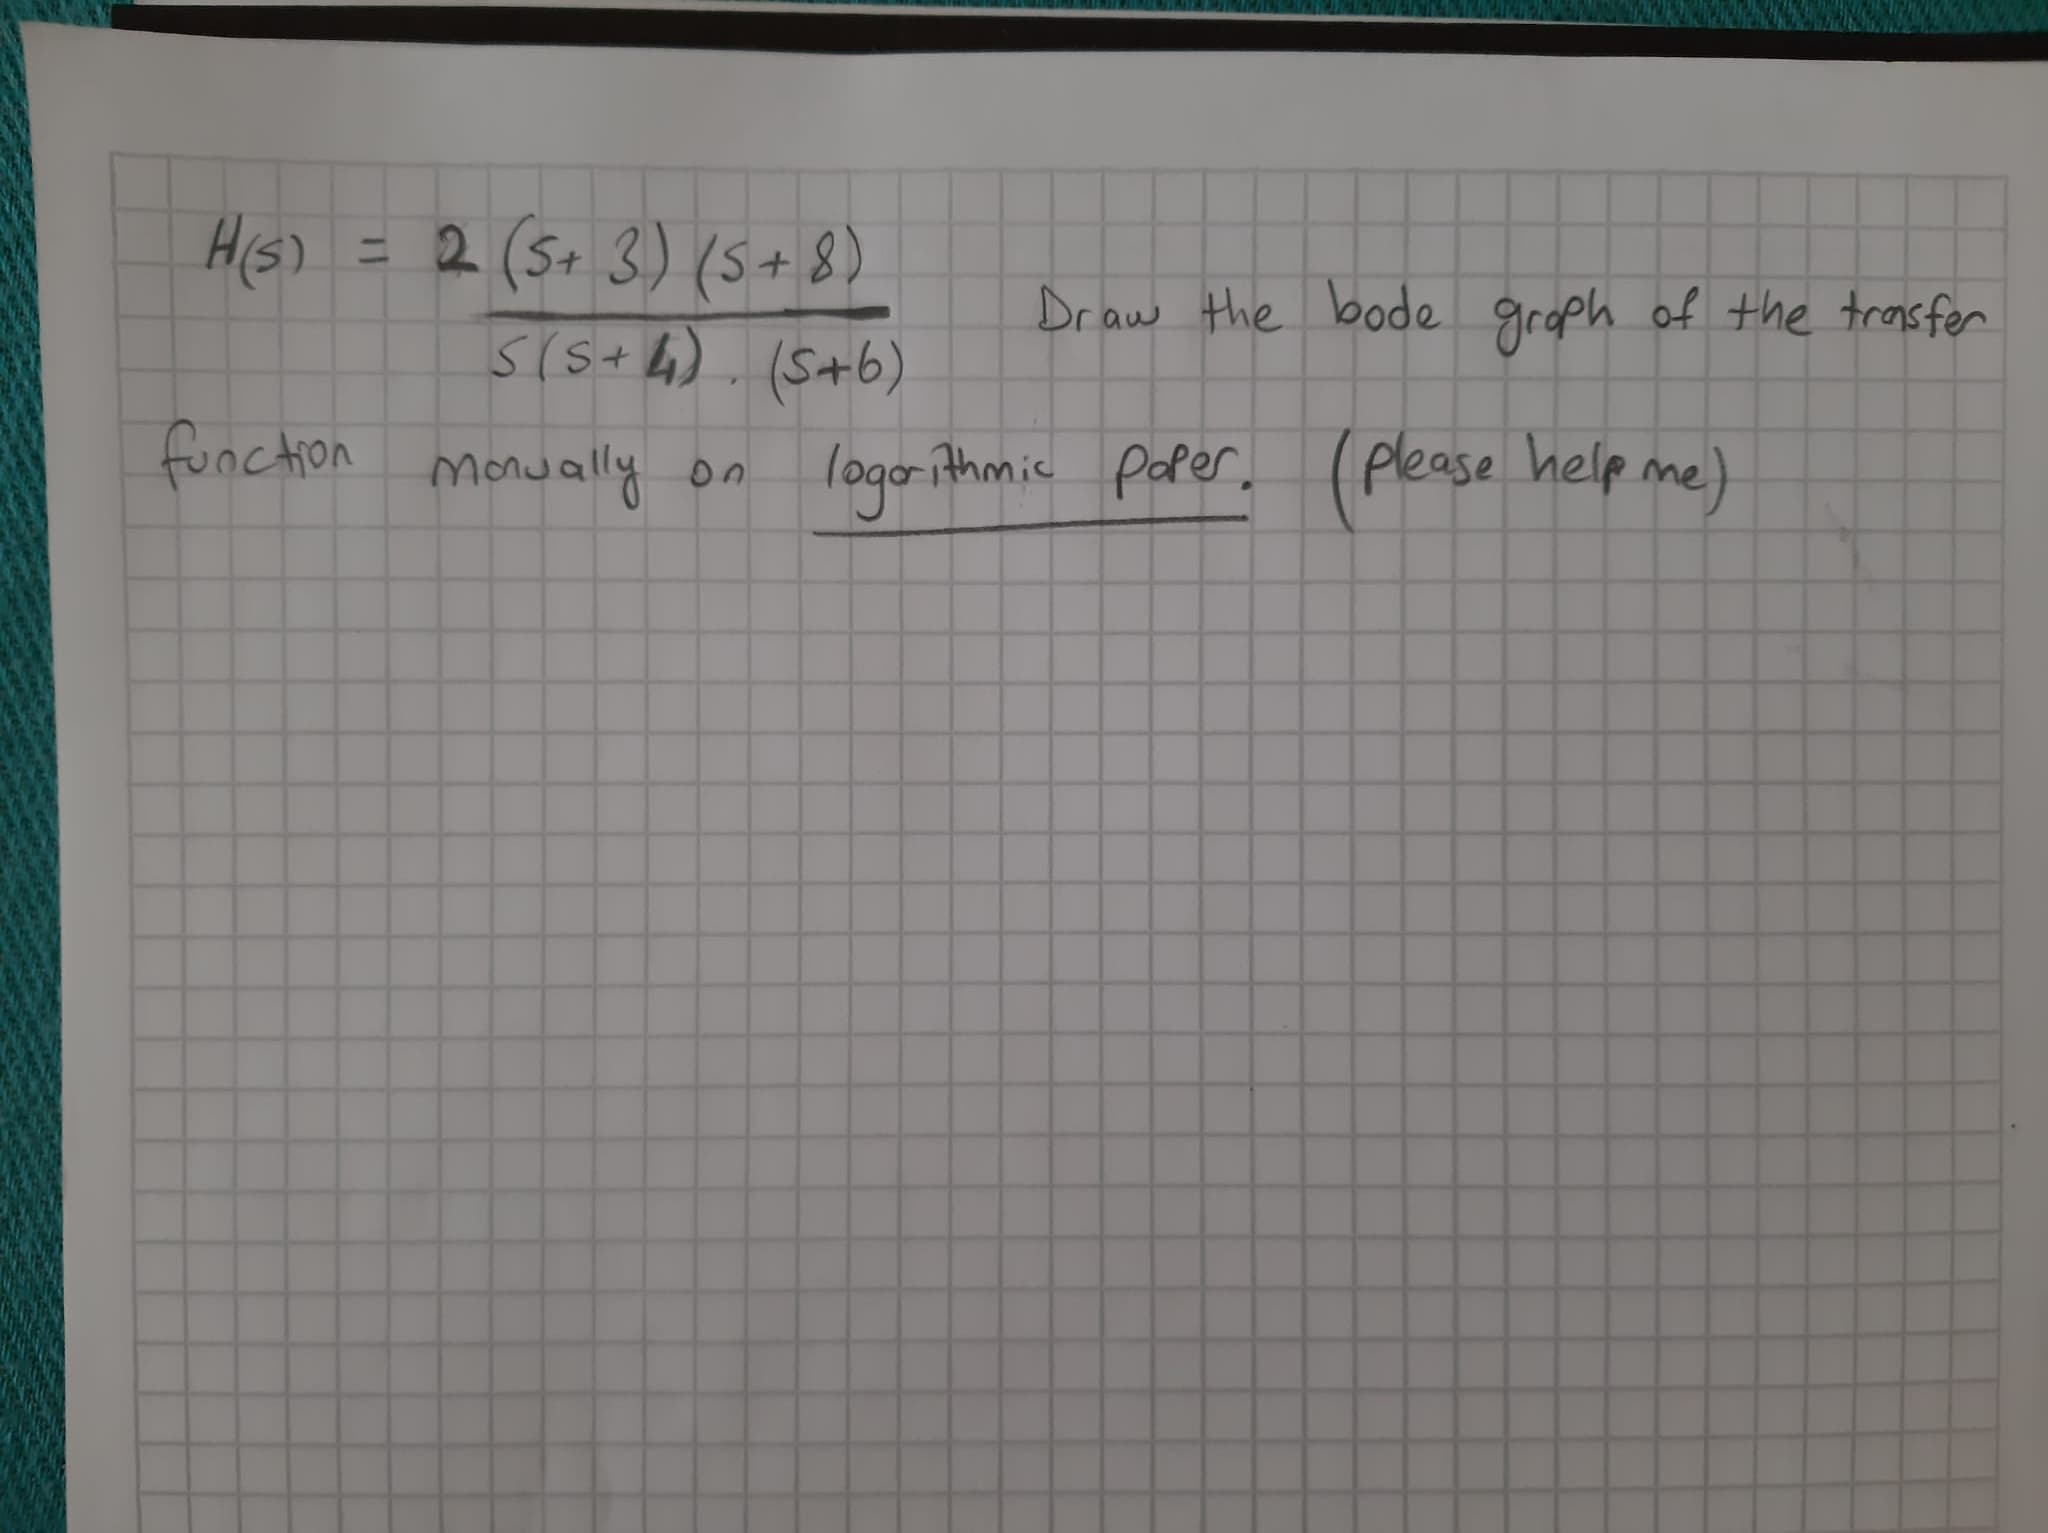 H(s) = 2 (s+ 3) (s + 8)
s(s+4) . (s+6)
Draw the bode graph of the transfer
function manually on logarithmic paper. (please help me)